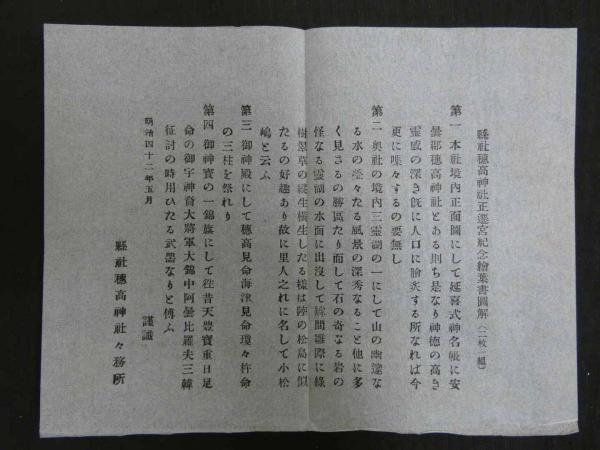 縣社穗高神社正遷宮紀念繪葉書圖解（二枚一組）
第一 本社境内正面圖にして延喜式神名帳に安
曇郡穗高神社とある則ち是なり神德の高き
靈威の深き旣に人口に膾炙する所なれば今
更に喋々するの要無し
第二 奥社の境内三靈湖の一にして山の幽邃な
る水の瑩々たる風景の深秀なること他に多
く見さるの勝區たり而して石の奇なる岩の
怪なる靈湖の水面に出沒して罅間罅際に綠
樹翠草の縱生橫生したる樣は陸の松島に似
たるの好趣あり故に里人之れに名して小松
嶋と云ふ
第三 御神殿にして穗高見命海津見命瓊々杵命
の三柱を祭れり
第四 御神寶の一錦旗にして往昔天豊寶重日足
命の御宇神裔大將軍大錦中阿曇比羅夫三韓
征討の時用ひたる武器なりと傳ふ
明治四十二年五月
謹識
縣社穗高神社々務所